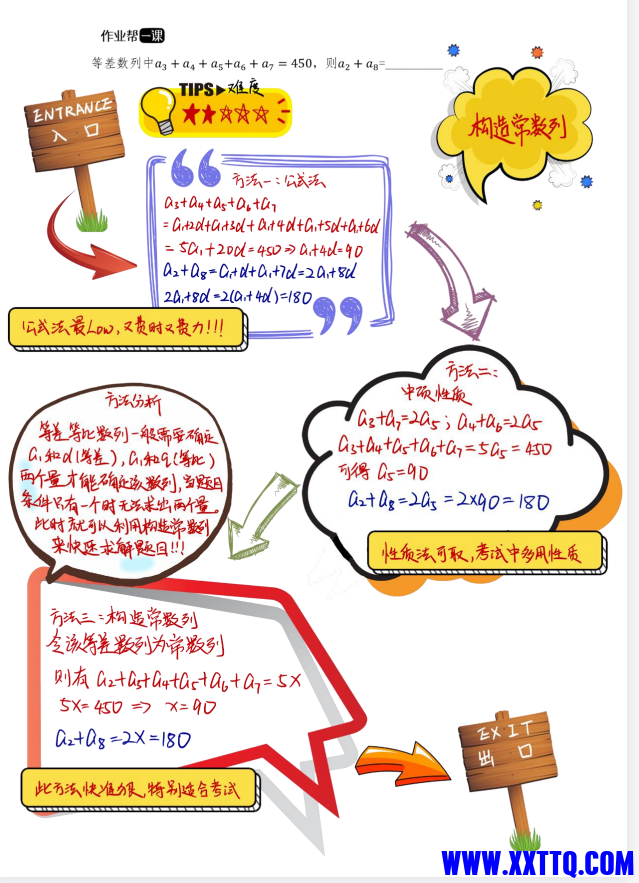 作业帮一课
等差数列中a₃ + a₄ + a₅+a₆ + a₇ = 450，则a₂ + a₈=__________
TIPS▶难度
ENTRANCE
入 口
构造常数列
方法一：公式法
a₃+a₄+a₅+a₆+a₇
=a₁+2d+a₁+3d+a₁+4d+a₁+5d+a₁+6d
=5a₁+20d=450⇒a₁+4d=90
a₂+a₈=a₁+d+a₁+7d=2a₁+8d
2a₁+8d=2(a₁+4d)=180
公式法最Low,又费时又费力!!!
方法二：
中项性质
a₃+a₇=2a₅; a₄+a₆=2a₅
a₃+a₄+a₅+a₆+a₇=5a₅=450
可得 a₅=90
a₂+a₈=2a₅=2×90=180
性质法可取,考试中多用性质
方法分析
等差等比数列一般需要确定
a₁和d(等差),a₁和q(等比)
两个量才能确定该数列,当题目
条件只有一个时无法求出两个量。
此时就可以利用构造常数列
来快速求解题目!!!
方法三：构造常数列
令该等差数列为常数列
则有 a₂+a₃+a₄+a₅+a₆+a₇=5x
5x=450 ⇒ x=90
a₂+a₈=2x=180
此方法快准狠,特别适合考试
EXIT
出 口
WWW.XXTTQ.COM